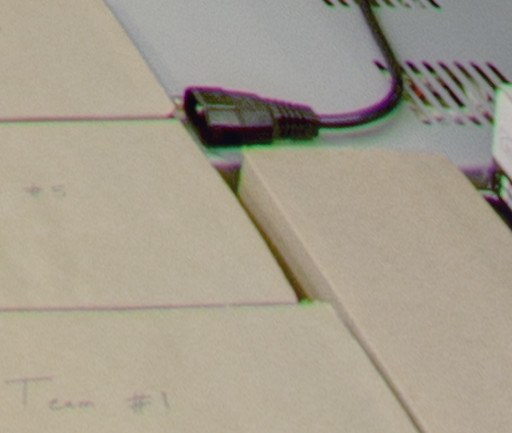 #5
Team #1